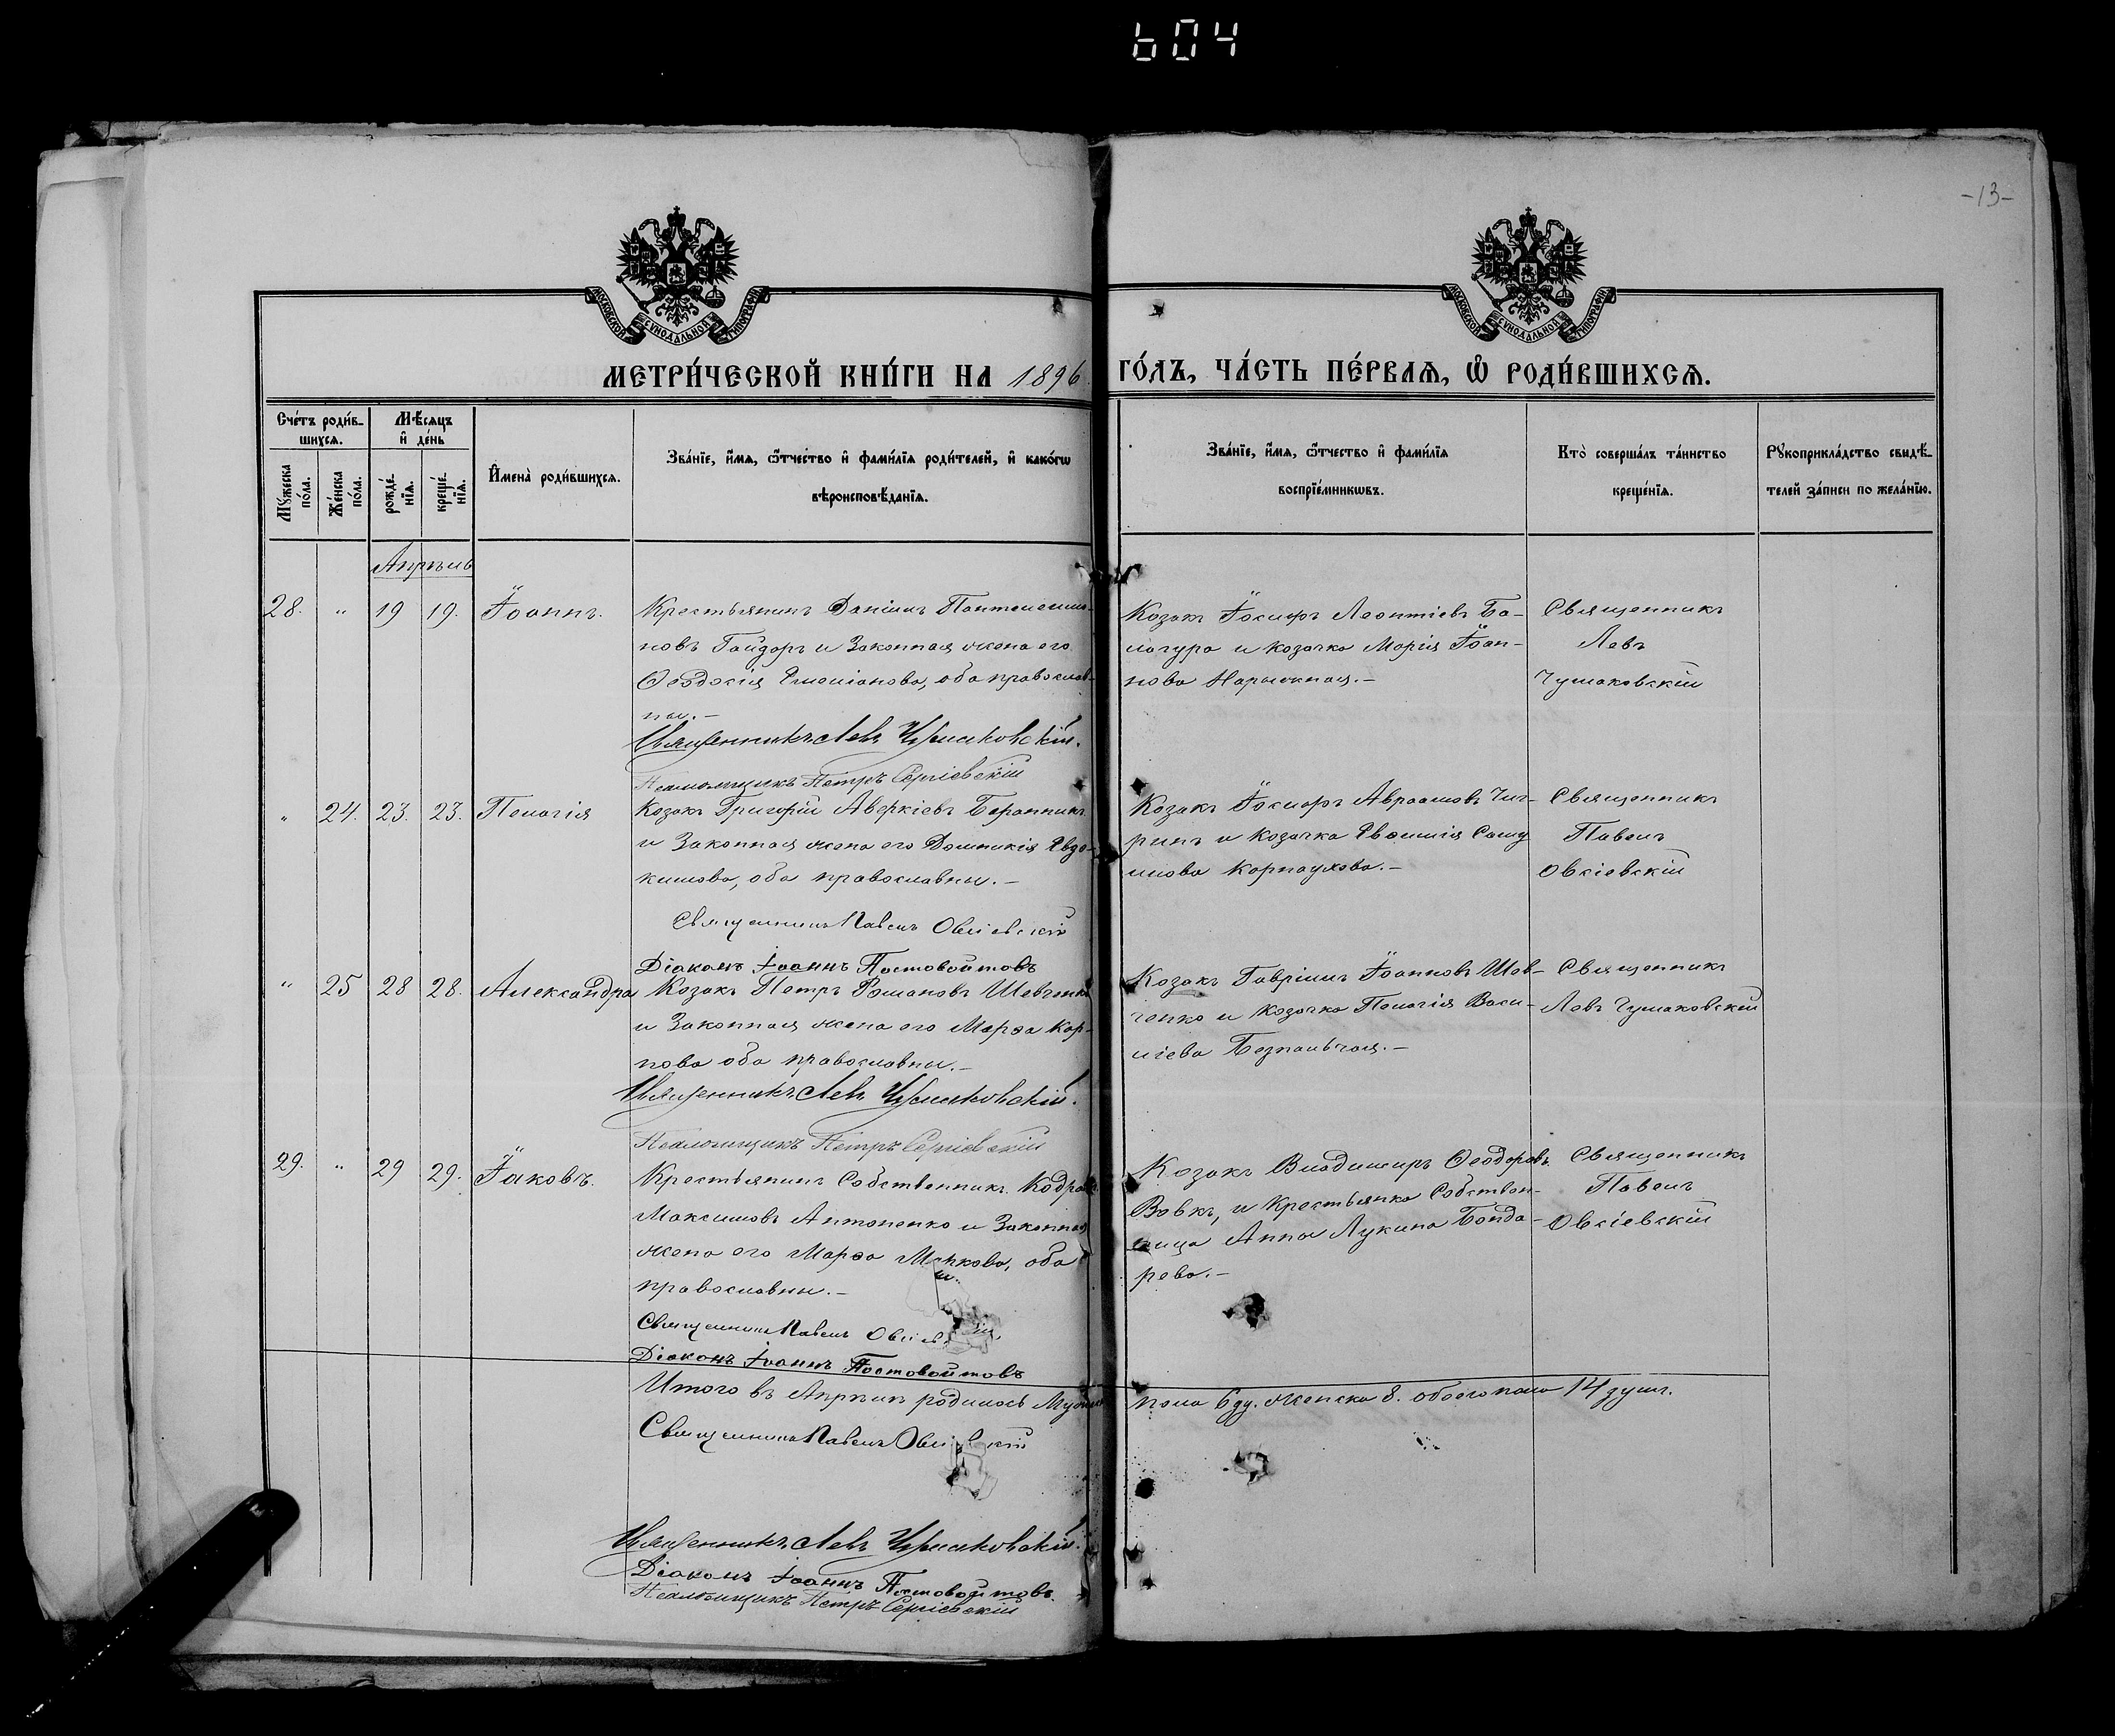 604
-13-
МОСКОВСКОЙ СѴНОДАЛЬНОЙ ТИПОГРАФІИ
МОСКОВСКОЙ СѴНОДАЛЬНОЙ ТИПОГРАФІИ
МЕТРИ́ЧЕСКОЙ КНИ́ГИ НА 1896 ГО́ДЪ, ЧА́СТЬ ПЕ́РВАѦ, Ѡ РОДИ́ВШИХСѦ.
Сче́тъ роди́в-
шихсѧ.
Мꙋ́жеска по́ла.
Же́нска по́ла.
Мѣ́сѧцъ
и҆ де́нь
рожде́-
нїѧ.
креще́-
нїѧ.
И҆мена̀ роди́вшихсѧ.
Зва́нїе, и҆́мѧ, ѻ҆́тчество и҆ фами́лїѧ роди́телей, и҆ како́гѡ
вѣроисповѣ́данїѧ.
Зва́нїе, и҆́мѧ, ѻ҆́тчество и҆ фами́лїѧ
воспрїе́мникѡвъ.
Кто̀ соверша́лъ та́инство
креще́нїѧ.
Рꙋкоприкла́дство свидѣ́-
телей за́писи по жела́нїю.
Апрѣль
28. " 19 19. Іоаннъ.
Крестьянинъ Даніилъ Пантелеимо-
новъ Гайдаръ и Законная жена его
Ѳеодосія Емеліанова, оба православ-
ны.-
Священникъ Левъ Чумаковскій.
Псаломщикъ Петръ Сергіевскій
Козакъ Іосифъ Леонтіевъ Ба-
лагура и козачка Марія Іоан-
нова Нарыжная.-
Священникъ
Левъ
Чумаковскій
" 24. 23. 23. Пелагія
Козакъ Григорій Аверкіевъ Баранникъ
и Законная жена его Домникія Евдо-
кимова, оба православны.-
Священникъ Павелъ Овсіевскій
Діаконъ Іоаннъ Постовойтовъ
Козакъ Іосифъ Авраамовъ Чиг-
ринъ и Козачка Евфимія Саму
илова Карпаухова.-
Священникъ
Павелъ
Овсіевскій
" 25 28 28. Александра
Козакъ Петръ Романовъ Шевченко
и Законная жена его Марѳа Кар-
пова оба православны.-
Священникъ Левъ Чумаковскій.
Псаломщикъ Петръ Сергіевскій
Козакъ Гавріилъ Іоанновъ Шев-
ченко и козачка Пелагія Васи-
ліева Безпальчая.-
Священникъ
Левъ Чумаковскій
29. " 29 29. Іаковъ.
Крестьянинъ Собственникъ Кодратъ
Максимовъ Антоненко и Законная
жена его Марѳа Маркова, оба
православны.-
Священникъ Павелъ Овсіевскій
Діаконъ Іоаннъ Постовойтовъ
Козакъ Владимиръ Ѳеодоровъ
Вовкъ, и Крестьянка Собствен-
ница Анна Лукина Бонда-
рева.-
Священникъ
Павелъ
Овсіевскій
Итого въ Апрѣлѣ родилось Мужеска пола 6 ду. женска 8. обоего пола 14 душъ.
Священникъ Павелъ Овсіевскій
Священникъ Левъ Чумаковскій.
Діаконъ Іоаннъ Постовойтовъ.
Псаломщикъ Петръ Сергіевскій